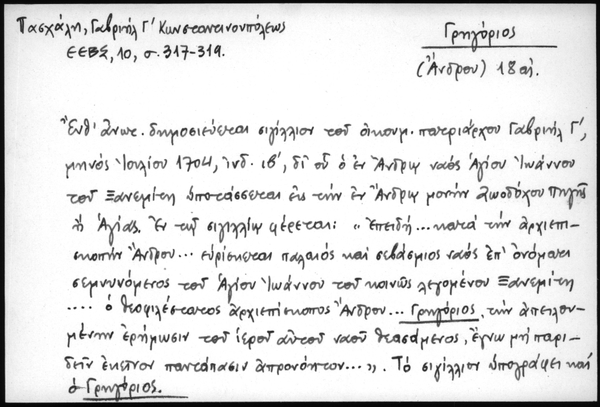 Πασχάλη, Γαβριήλ Γ' Κωνσταντινουπόλεως
ΕΕΒΣ, 10, σ. 317-319.
Γρηγόριος
(Ἄνδρου) 18 αἰ.
Ἔνθ' ἀνωτ. δημοσιεύεται σιγίλλιον τοῦ οἰκουμ. πατριάρχου Γαβριήλ Γ',
μηνός Ἰουλίου 1704, ἰνδ. ιβ', δι' οὗ ὁ ἐν Ἄνδρῳ ναός Ἁγίου Ἰωάννου
τοῦ Ξανεμίτη ὑποτάσσεται εἰς τήν ἐν Ἄνδρῳ μονήν Ζωοδόχου Πηγῆς
ἤ Ἁγίας. Ἐν τῷ σιγιλλίῳ φέρεται: "Ἐπειδή... κατά τήν ἀρχιεπι-
σκοπήν Ἄνδρου... εὑρίσκεται παλαιός καί σεβάσμιος ναός ἐπ' ὀνόματι
σεμνυνόμενος τοῦ Ἁγίου Ἰωάννου τοῦ κοινῶς λεγομένου Ξανεμίτη
.... ὁ θεοφιλέστατος ἀρχιεπίσκοπος Ἄνδρου... Γρηγόριος, τήν ἀπειλου-
μένην ἐρήμωσιν τοῦ ἱεροῦ αὐτοῦ ναοῦ θεασάμενος, ἔγνω μή παρι-
δεῖν ἐκεῖνον παντάπασιν ἀπρονόητον...". Τό σιγίλλιον ὑπογράφει καί
ὁ Γρηγόριος.